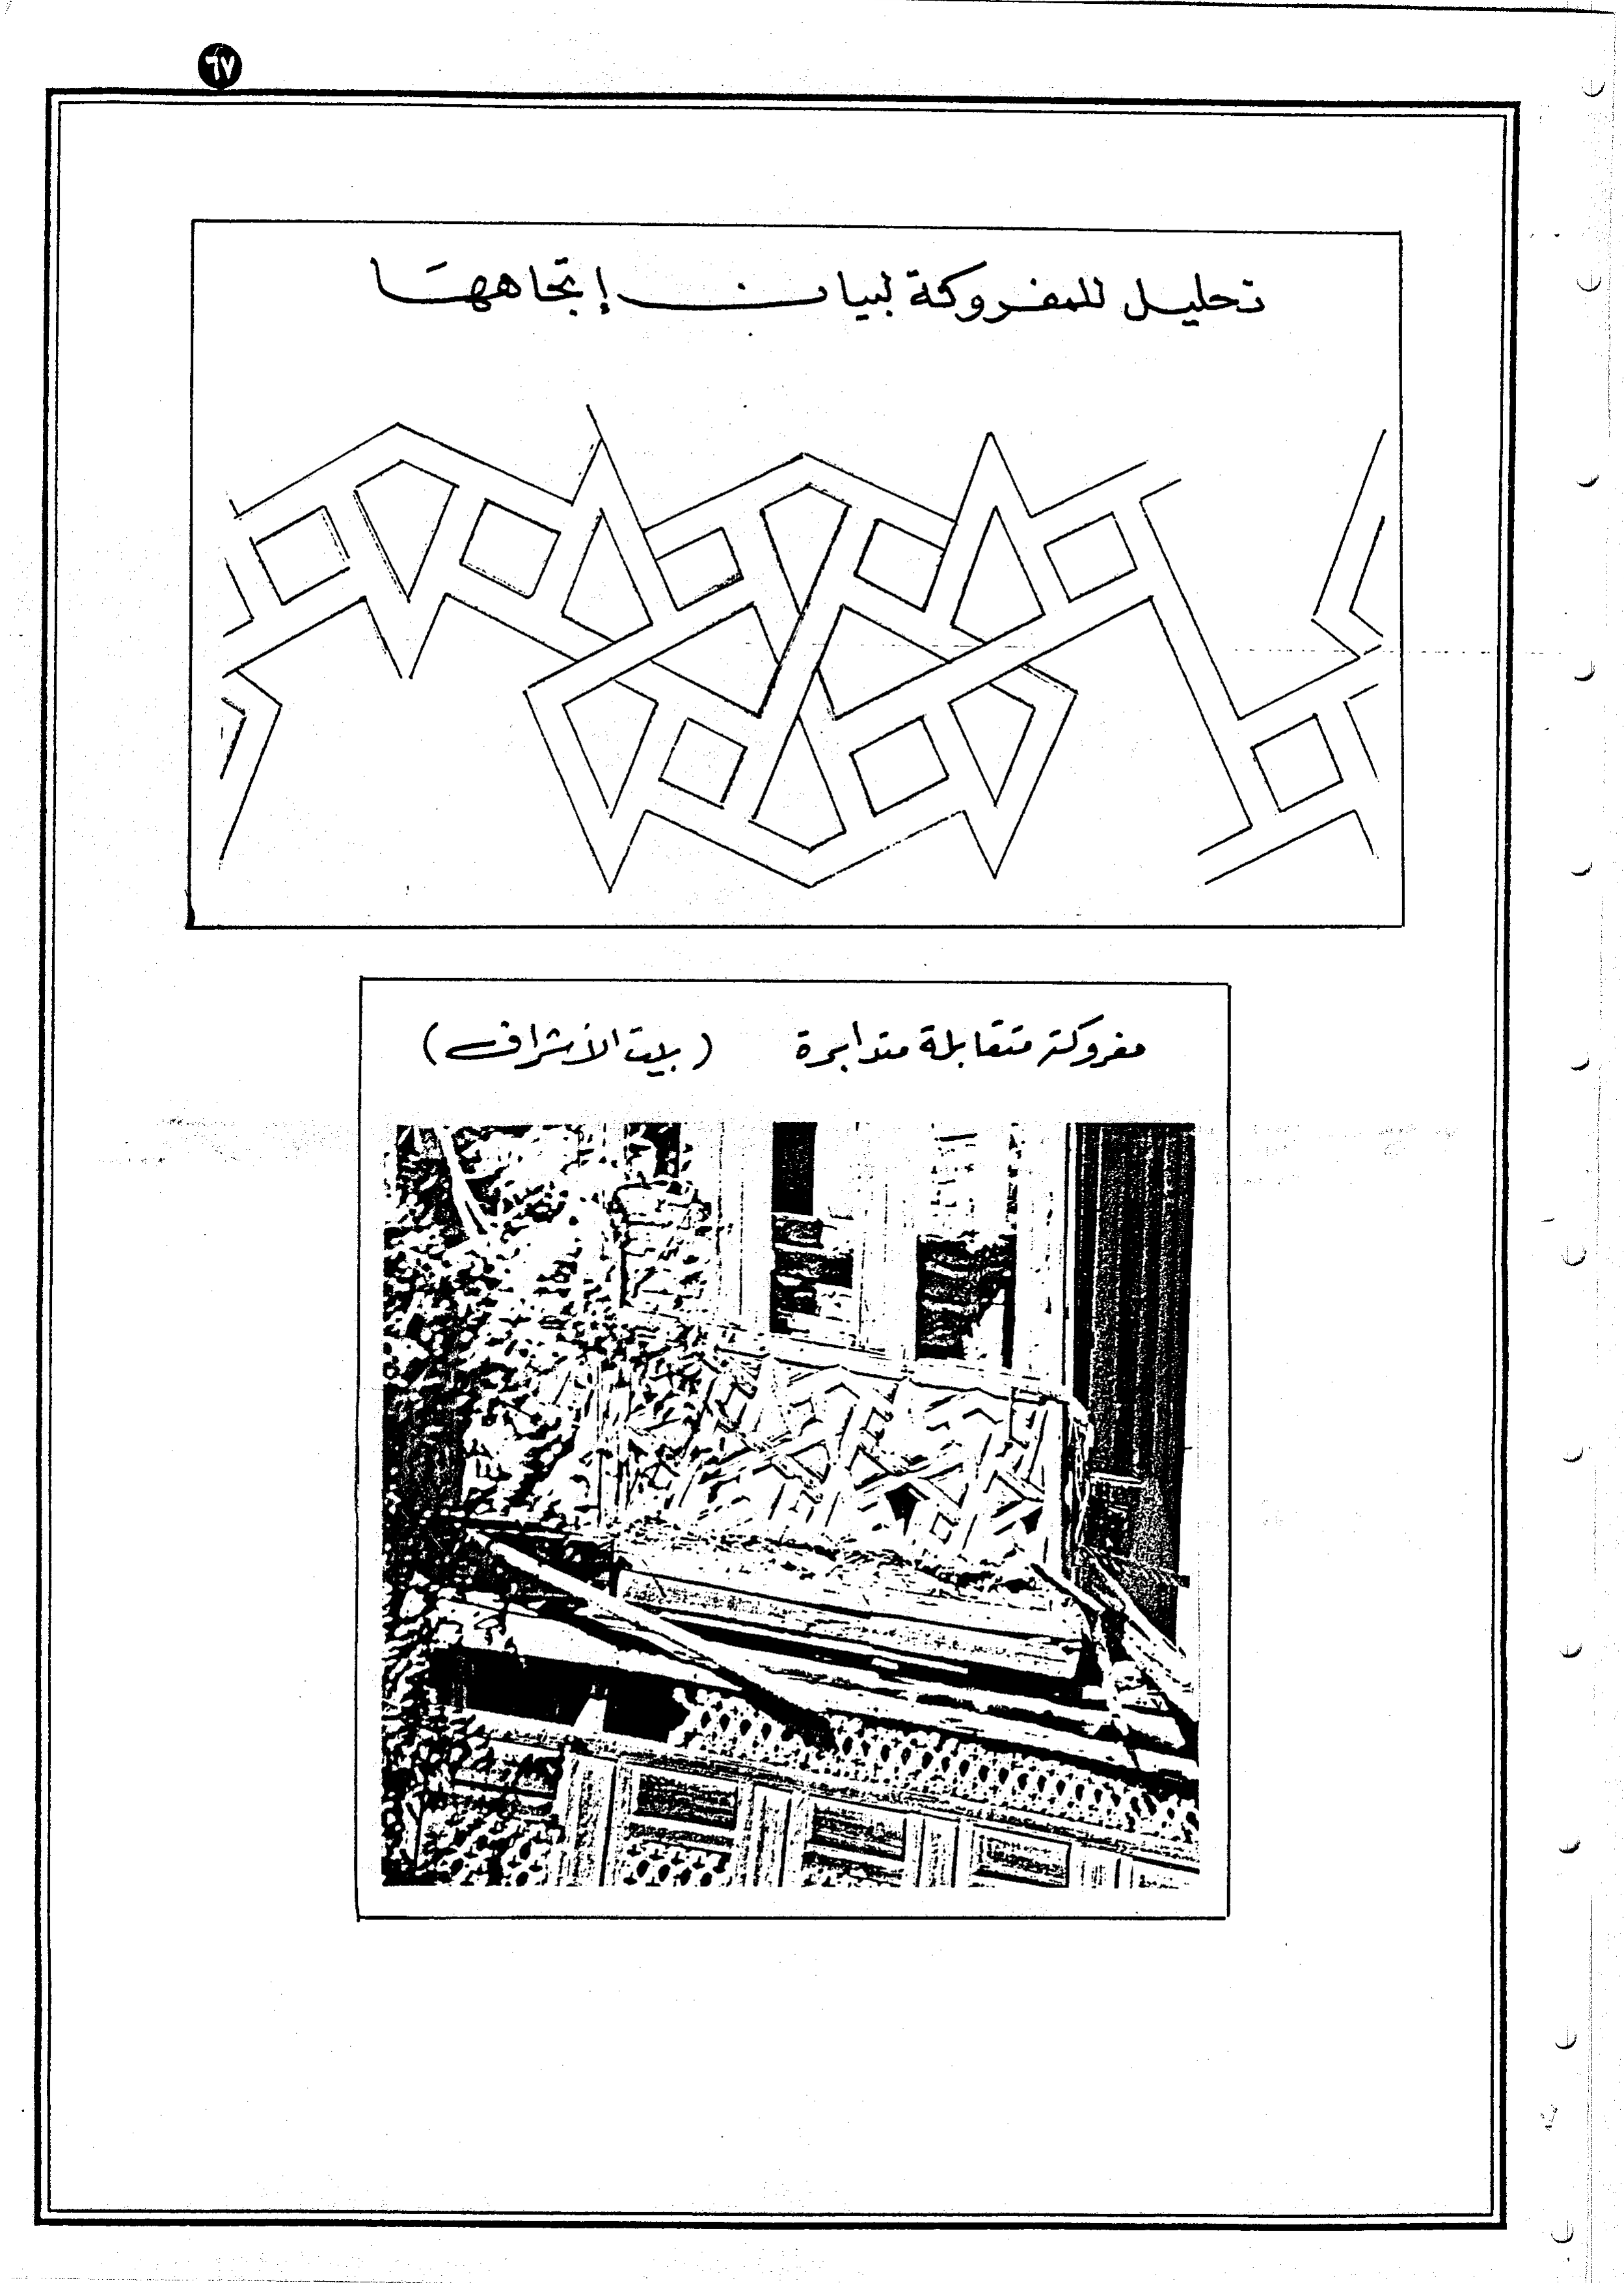 ٦٧
تحليل للمفروكة لبيان إتجاهها
مفروكة متقابلة متدابرة (بيت الأشراف)